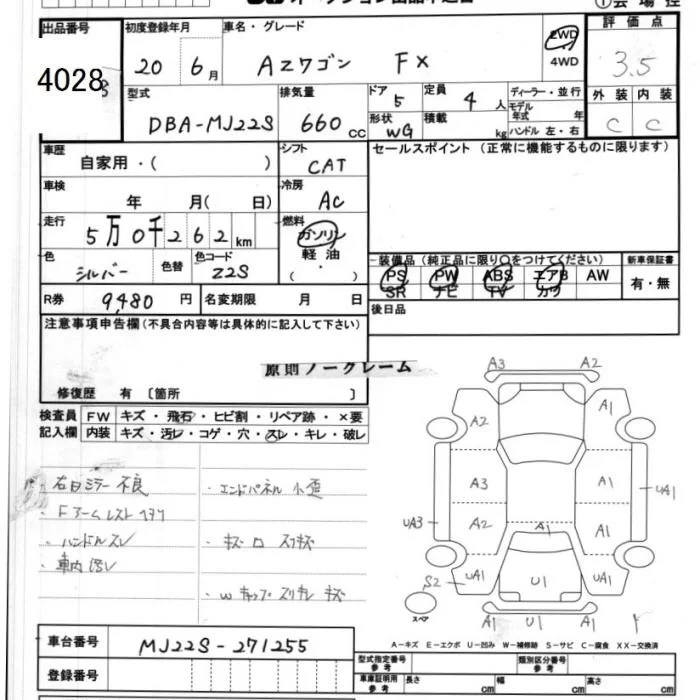 出品番号 初度登録年月 車名・グレード 2WD 4WD 評価点
4028 20 6月 AZワゴン FX 3.5
型式 排気量 ドア 5 定員 4人 ディーラー・並行 外装 内装
モデル年式 年式
DBA-MJ22S 660cc 形状 WG 積載 kg ハンドル 左・右 C C
車歴 シフト セールスポイント (正常に機能するものに限ります)
自家用・( ) CAT
車検 冷房
年 月( 日) AC
走行 燃料
5万0千262km ガソリン
軽油
色 色替 色コード ・
シルバー Z2S ( )
装備品 (純正品に限り○をつけてください) 新車保証書
PS PW ABS エアB AW 有・無
SR ナビ TV カワ
R券 9,480円 名変期限 月 日 後日品
注意事項申告欄(不具合内容等は具体的に記入して下さい)
原則ノークレーム
修復歴 有 〔箇所 〕
検査員 FW キズ・飛石・ヒビ割・リペア跡・×要
記入欄 内装 キズ・汚レ・コゲ・穴・スレ・キレ・破レ
右ドミラー不良 ・エンドパネル 小歪
・Fアームレスト
・ハンドルスレ
・車内
A3 A2
A2 A1
A3 A1 UA1
UA3 A2 A1 A1
S2 UA1 U1 UA1
スペア A1 U1 A1
A-キズ E-エクボ U-凹み W-補修跡 S-サビ C-腐食 XX-交換済
車台番号 MJ22S-271255
型式指定番号 参考 類別区分番号 参考
登録番号 車庫証明用 参考 長さ cm 幅 cm 高さ cm